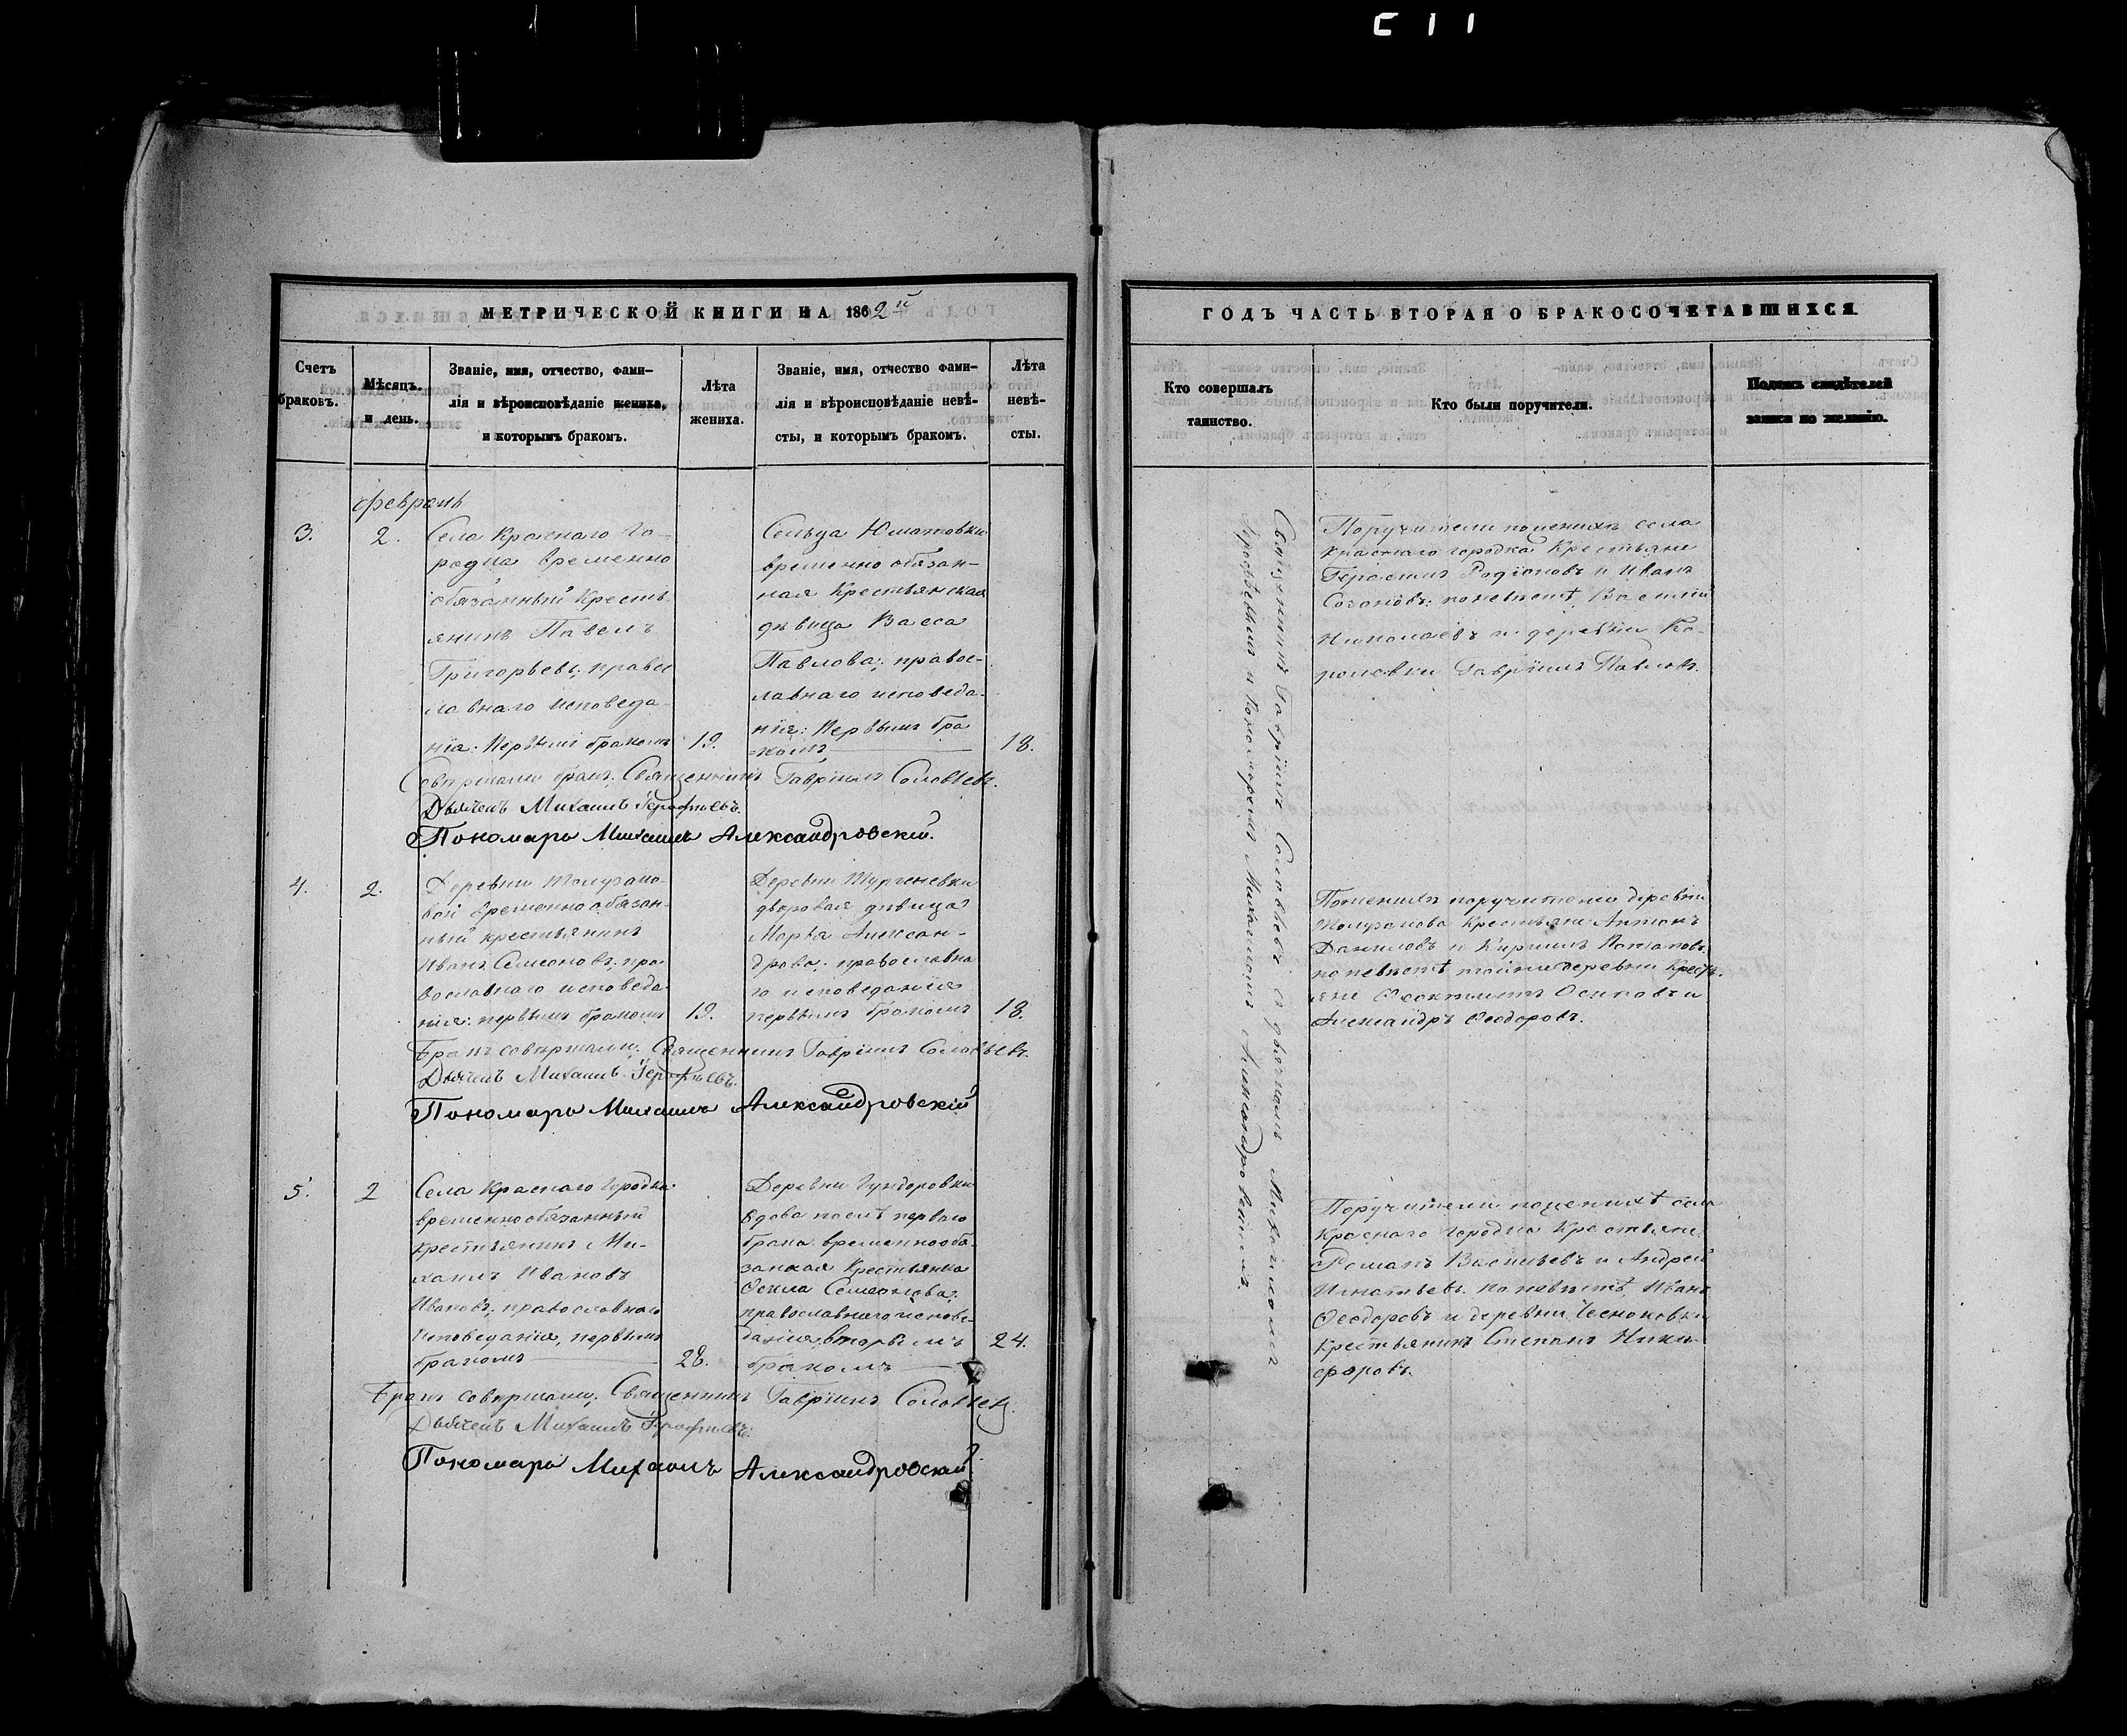 МЕТРИЧЕСКОЙ КНИГИ НА 1862й
Счетъ браковъ.
Мѣсяцъ. и день.
Званіе, имя, отчество, фами-
лія и вѣроисповѣданіе жениха,
и которымъ бракомъ.
Лѣта жениха.
Званіе, имя, отчество фами-
лія и вѣроисповѣданіе невѣ-
сты, и которымъ бракомъ.
Лѣта невѣ-
сты.
Февраль
3.
2.
Села Краснаго Го-
родка временно
обязанный Кресть-
янинъ Павелъ
Григорьевъ; право
лавнаго исповеда-
нія: Первымъ бракомъ
19.
Сельца Юматовки
временно обязан-
ная Крестьянская
дѣвица Васса
Павлова; правос-
лавнаго исповеда-
нія: Первымъ бра
комъ
18.
Совершали бракъ: Священникъ Гавріилъ Соловьевъ.
Дьячекъ Михаилъ
Пономарь Михаилъ Александровскій.
4.
2.
Деревни
вой временно обязан-
ный крестьянинъ
Иванъ Семеоновъ; пра-
вославнаго исповеда-
нія: первымъ бракомъ
19.
Деревни Тургеневки
дворовая дѣвица
Марѳа Алексан-
дрова; православна
го исповеданія
первымъ бракомъ
18.
Бракъ совершали: Священникъ Гавріилъ Соловьевъ.
Дьячекъ Михаилъ
Пономарь Михаилъ Александровскій
5.
2
Села Краснаго Городка
временнообязанный
крестьянинъ Ми-
хаилъ Ивановъ
Ивановъ; православнаго
Исповеданія, первымъ
бракомъ
28.
Деревни Гундоровки
вдова послѣ перваго
брака временнообя-
занная Крестьянка
Семеонова;
православнаго испове-
данія, вторымъ
бракомъ
24.
Бракъ совершали: Священникъ Гавріилъ Соловьевъ.
Дьячекъ Михаилъ
Пономарь Михаилъ Александровскій.
ГОДЪ ЧАСТЬ ВТОРАЯ О БРАКОСОЧЕТАВШИХСЯ.
Кто совершалъ
таинство.
Кто были поручители.
Подпись свидѣтелей
записи по желанію.
Священникъ Гавріилъ Соловьевъ съ дьячкомъ Михаиломъ
и Пономаремъ Михаиломъ Александровскимъ.
Поручители по женихѣ села
Краснаго городка Крестьяне
Герасимъ Родіоновъ и Иванъ
по невѣстѣ, Василій
Николаевъ и деревни Ко-
роловки Гавріилъ Павловъ.
По женихѣ поручители деревни
Крестьяне Антонъ
Даниловъ и Кирилъ Потаповъ.
по невѣстѣ тойже деревни Крестъ-
яне Ѳеоктистъ Осиповъ и
Александръ Ѳеодоровъ.
Поручители по женихѣ села
Краснаго Городка Крестьяне
Романъ Васильевъ и Андрей
Игнатьевъ. По невѣстѣ, Иванъ
Ѳеодоровъ и деревни Чесноковки
крестьянинъ Степанъ Ники-
форовъ.